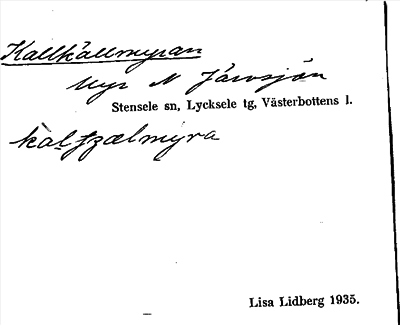 Kallkällmyran
Myr N Järvsjön
Stensele sn, Lycksele tg, Västerbottens l.
Lisa Lidberg 1935.